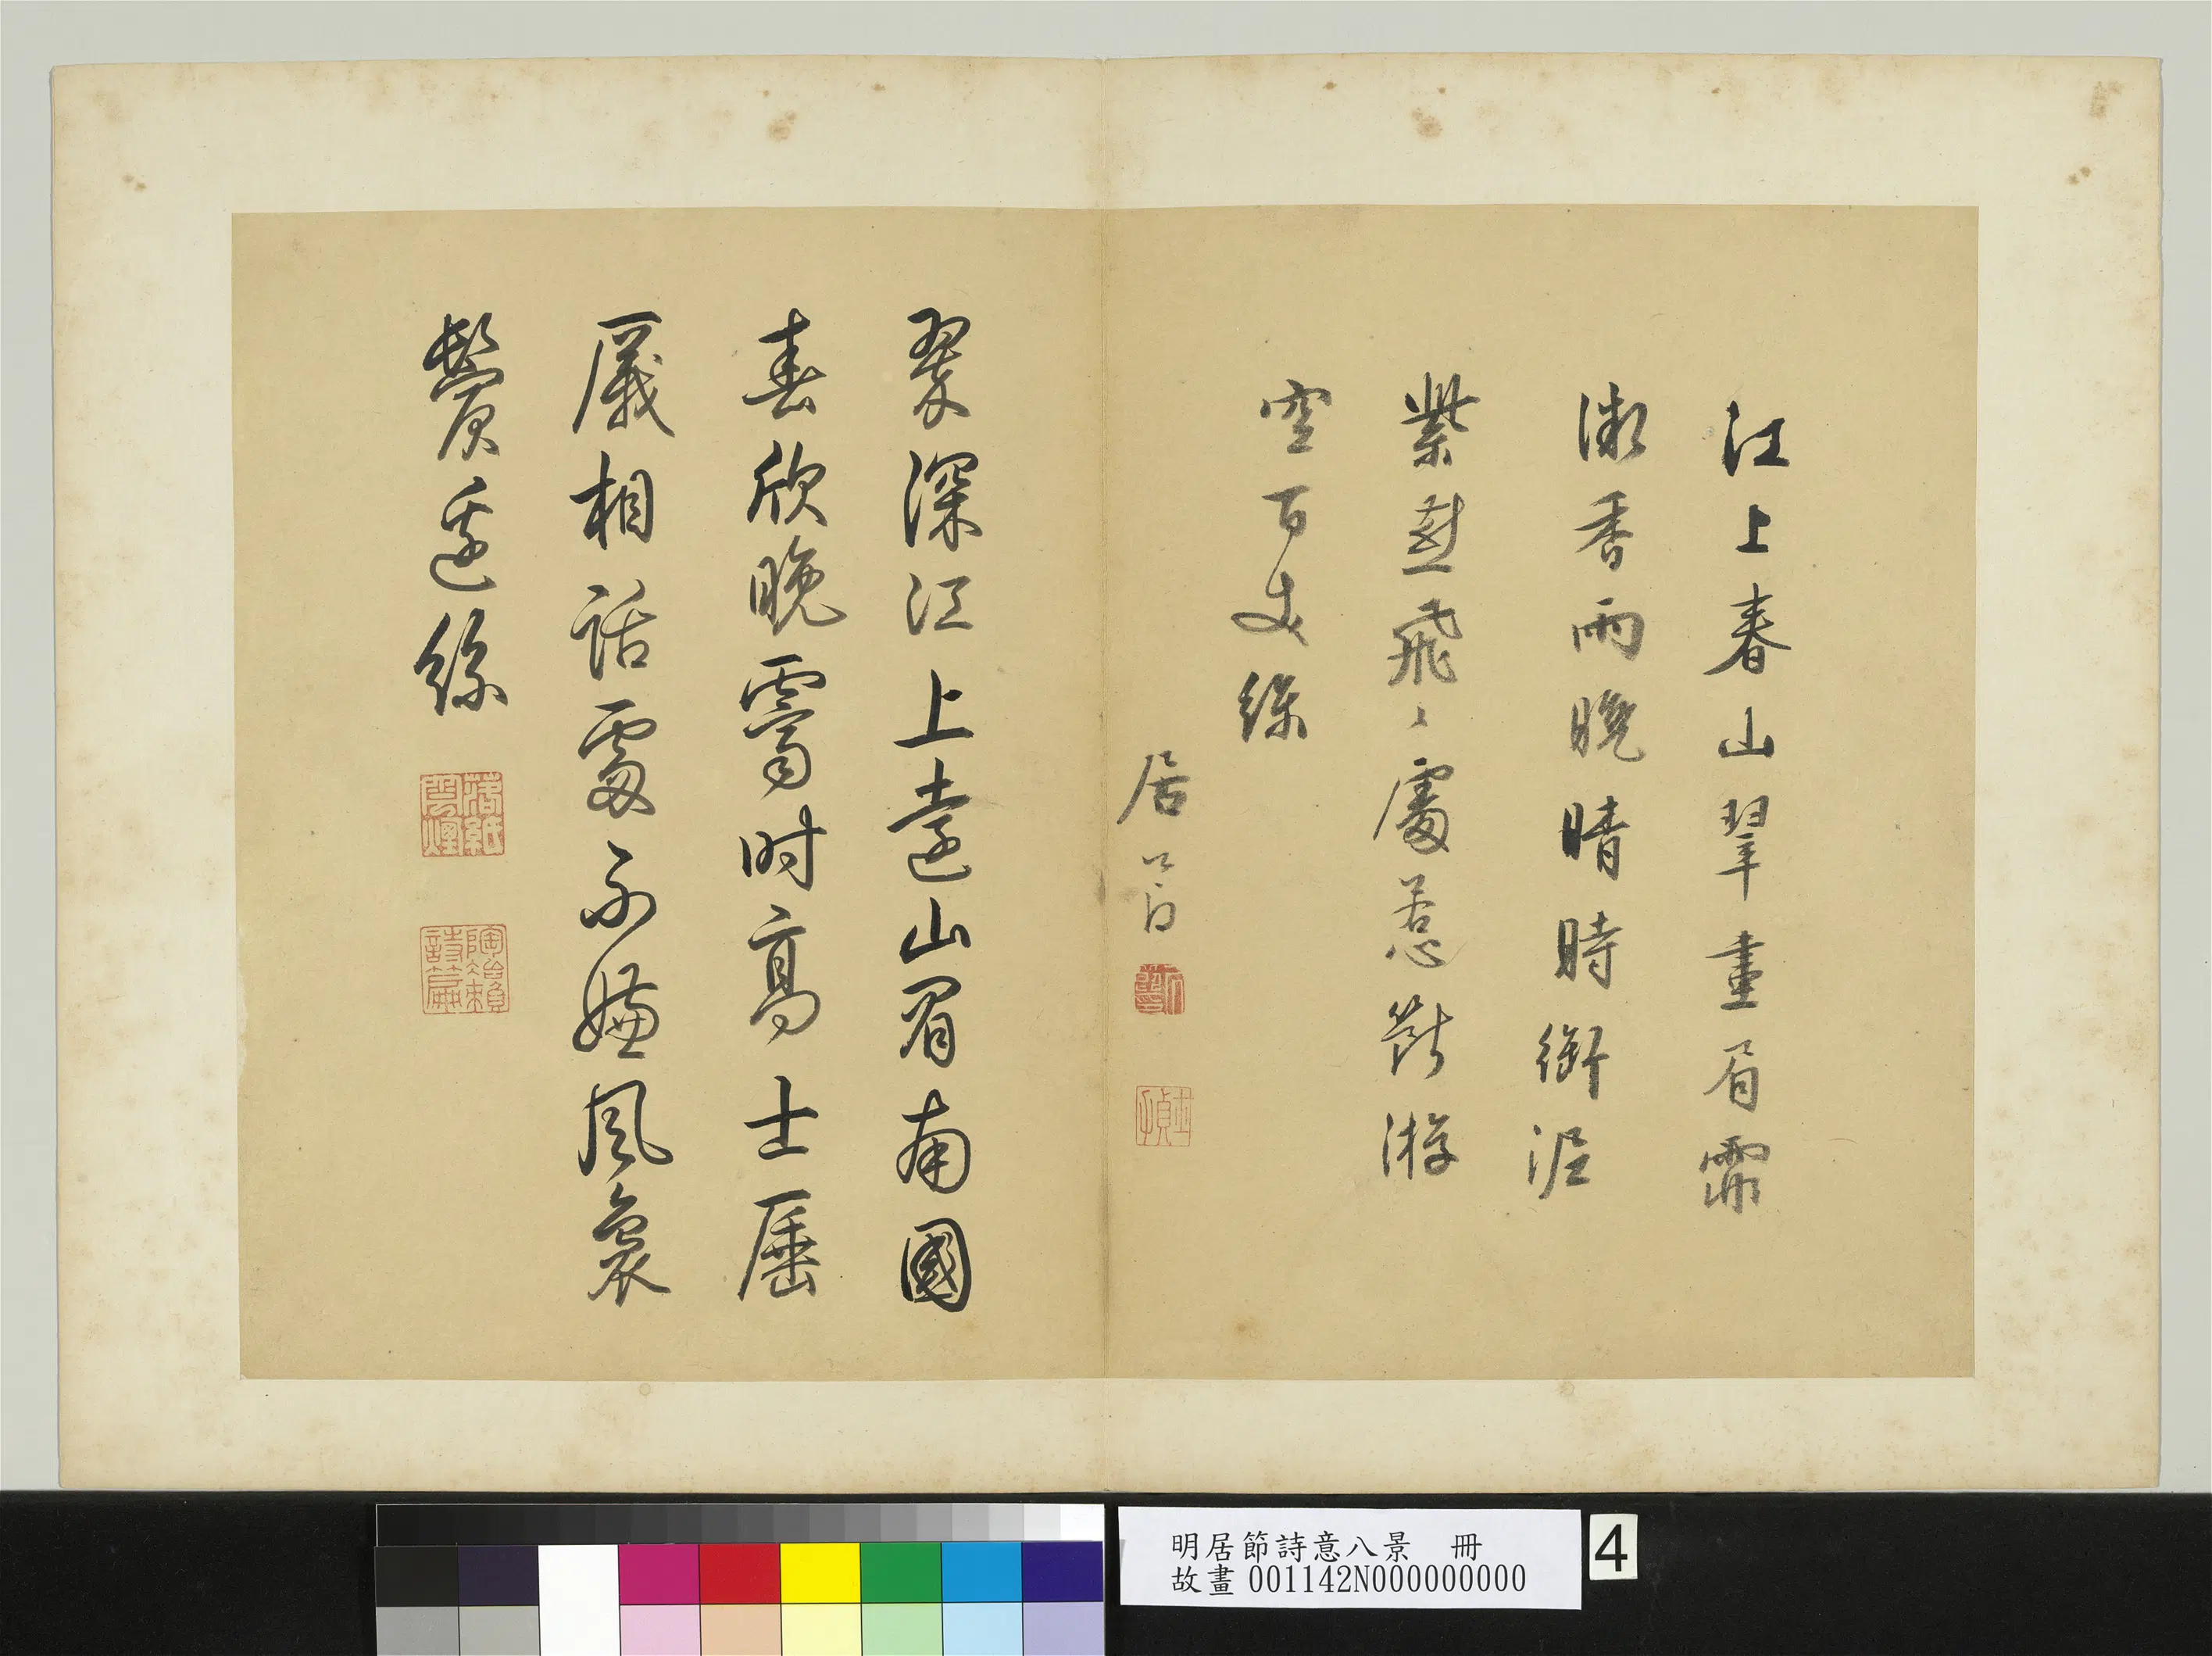 江上春山翠畫眉霏
微香雨晚晴時銜泥
紫燕飛〻處惹斷游
空百丈絲
居節
翠深江上遠山眉南國
春欣晚霽時高士厜
㕒相話處不嫌風裊
鬢邊絲
落紙雲煙
陶冶賴詩篇
明居節詩意八景　冊
故畫 001142N000000000
4